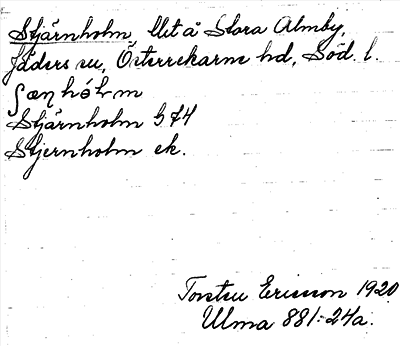 Stjärnholm, llet å Stora Almby,
Jäders sn, Österrekarne hd, Söd. l.
ʃæɳhólm
Stjärnholm G 74
Stjernholm ek.
Torsten Ericsson 1920
Ulma 881:24a.